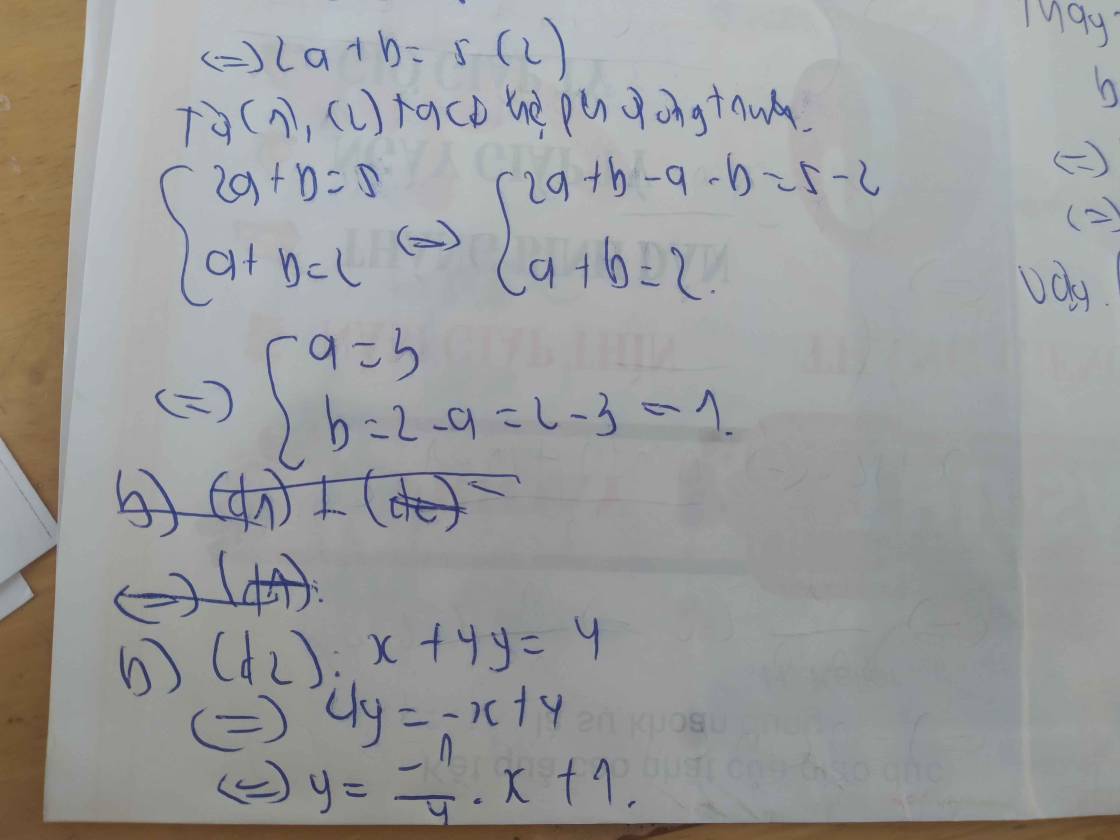 ⇔ 2a + b = 5 (2)
Từ (1), (2) ta có hệ phương trình:
{ 2a + b = 5 ⇔ { 2a + b - a - b = 5 - 2
{ a + b = 2 { a + b = 2.
⇔ { a = 3
{ b = 2 - a = 2 - 3 = 1.
b) (d1) ⊥ (d2)
⇔ (d1):
b) (d2): x + 4y = 4
⇔ 4y = -x + 4
⇔ y = -1/4 . x + 1.
Thay
b
⇔
⇔
Vậy (